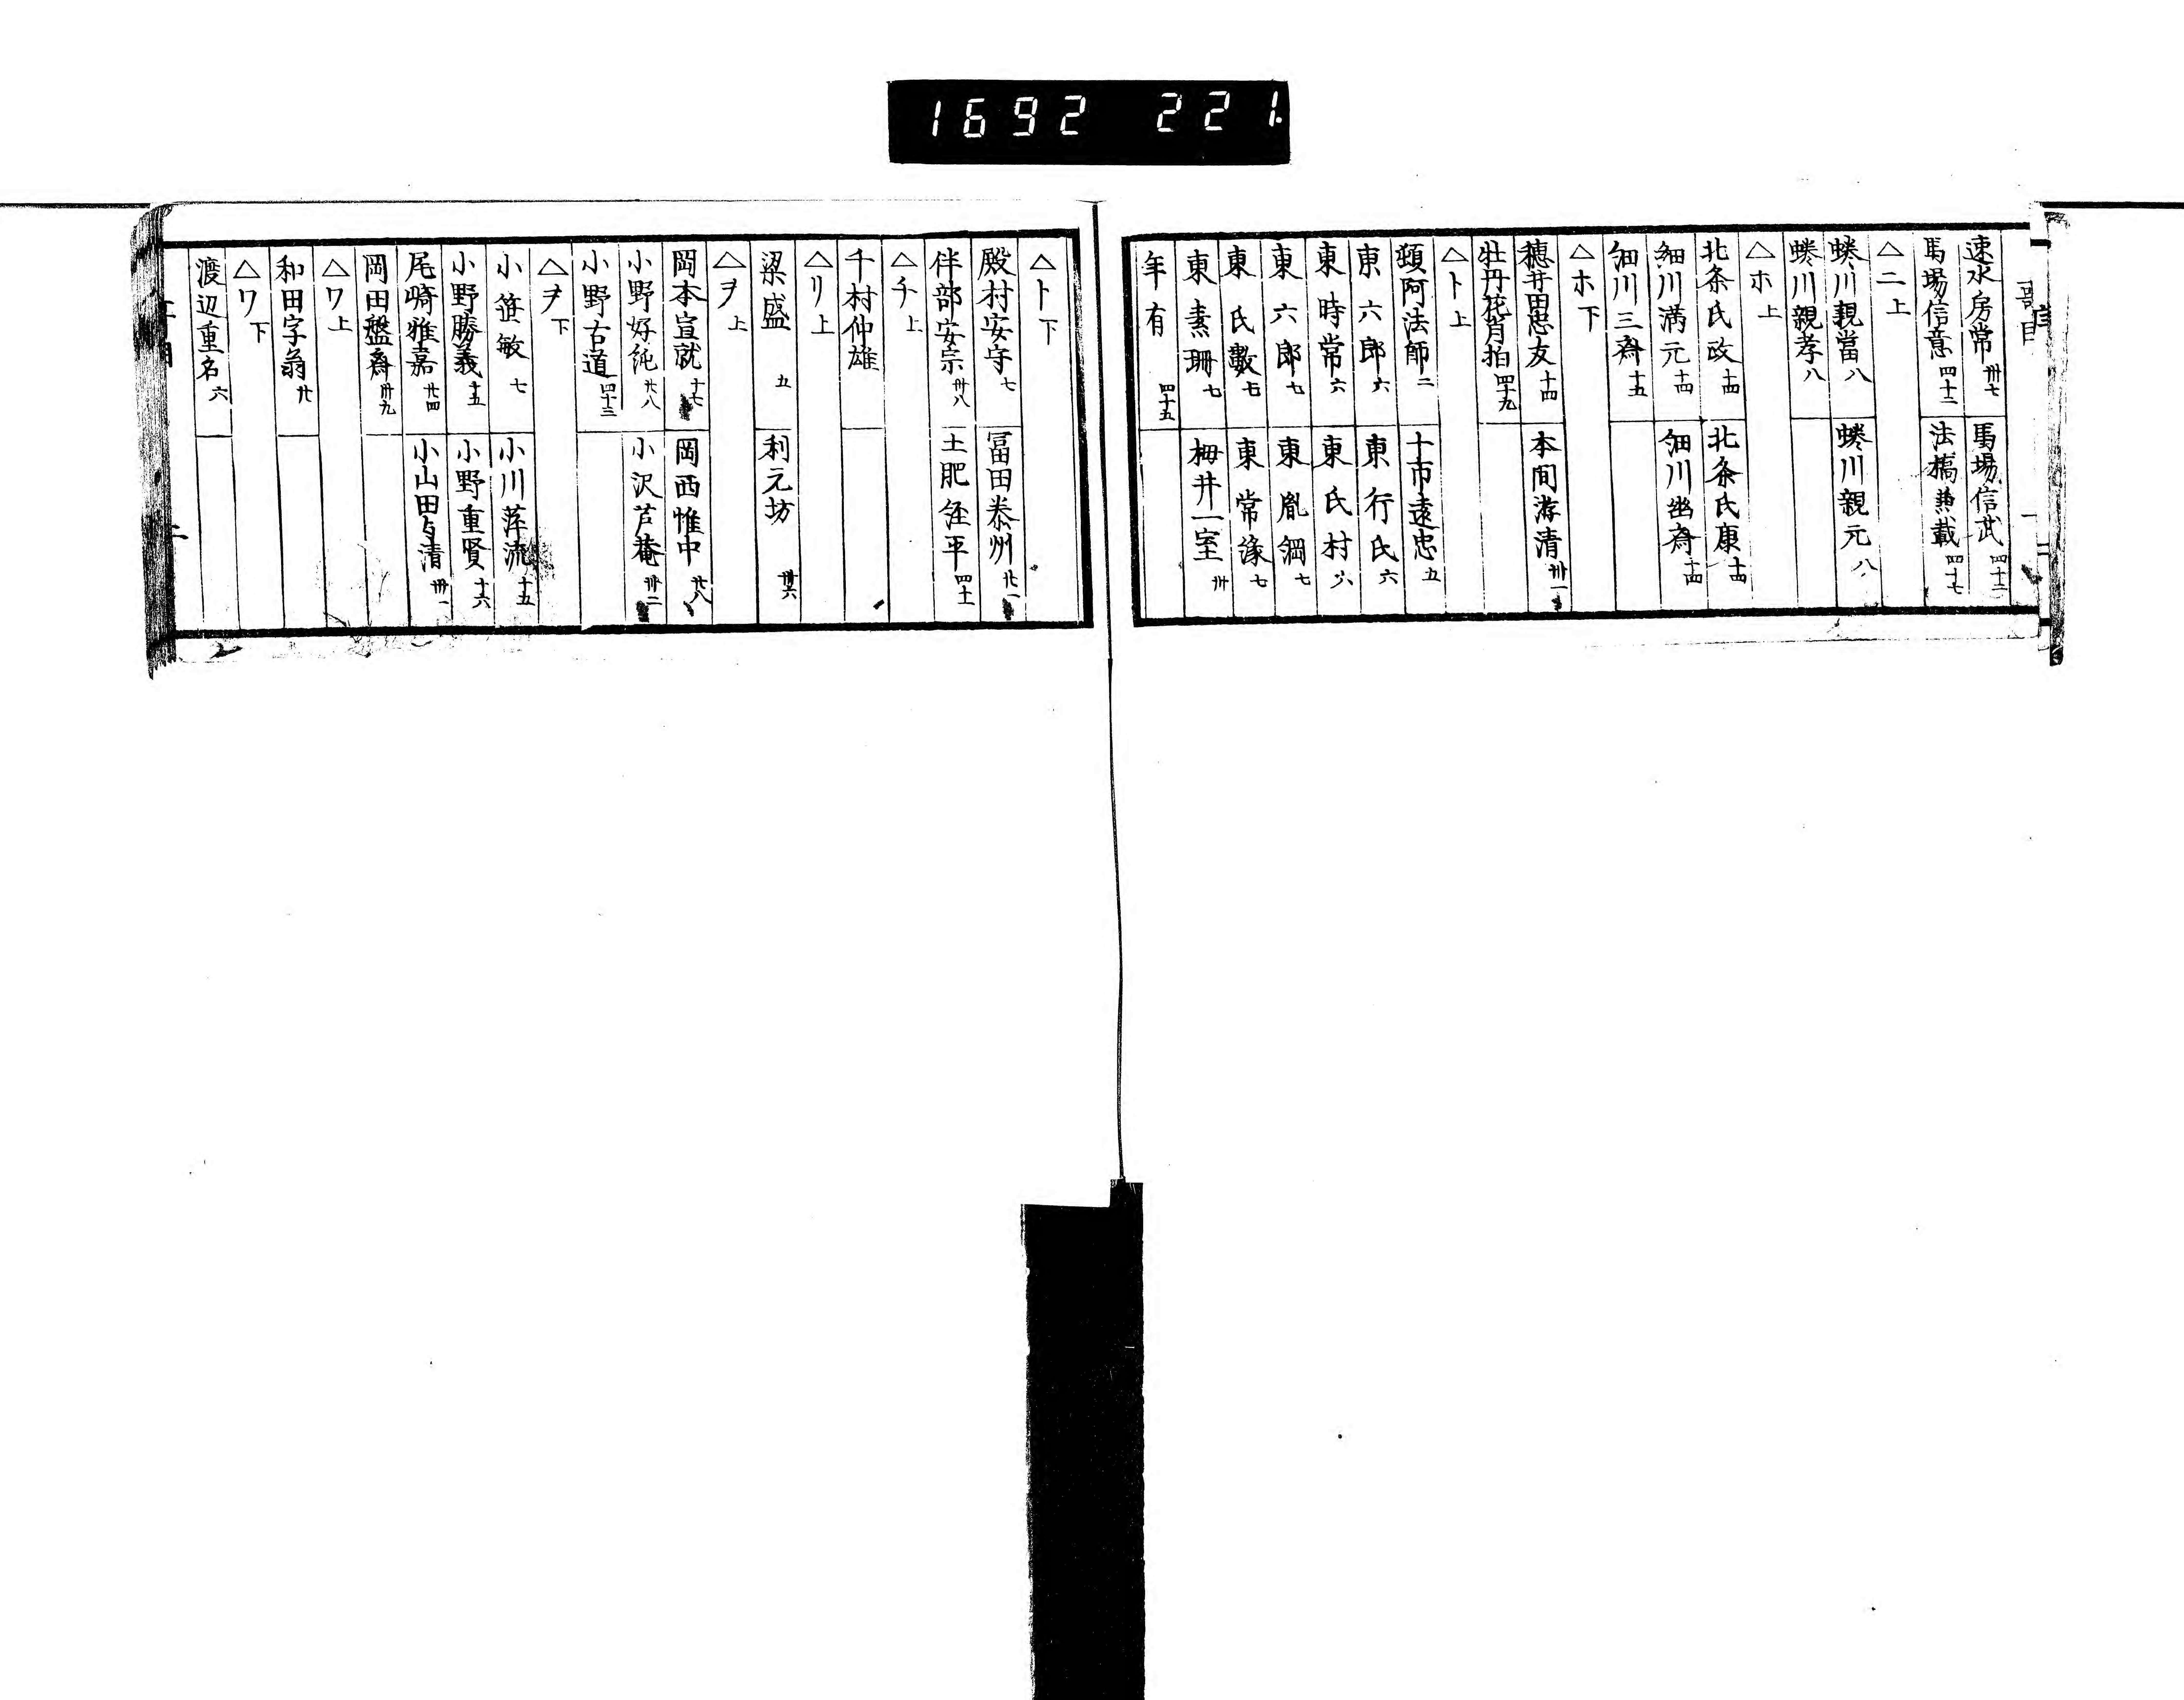 1692 221.
速水房常 卅七 馬場信武 四十二
馬場信意 四十二 法橋兼載 四十七
△ニ上
蜷川親當 八 蜷川親元 八
蜷川親孝 八
△ホ上
北条氏政 十四 北条氏康 十四
細川満元 十四 細川幽斎 十四
細川三斎 十五
△ホ下
穂井田忠友 十四 本間游清 卅一
牡丹花肖柏 四十九
△ト上
頓阿法師 二 十市遠忠 五
東六郎 六 東行氏 六
東時常 六 東氏村 六
東六郎 七 東胤綱 七
東氏數 七 東常縁 七
東素珊 七 梅井一室 卅
年有 四十五
△ト下
殿村安守 七 冨田泰州 廿一
伴部安宗 卅八 土肥経平 四十一
△チ上
千村仲雄
△リ上
梁盛 五 利元坊 卅六
△ヲ上
岡本宣就 十七 岡西惟中 廿八
小野好純 廿八 小沢芦菴 卅二
小野古道 四十三
△ヲ下
小笹敏 七 小川萍流 十五
小野勝義 十五 小野重賢 十六
尾崎雅嘉 廿四 小山田与清 卅一
岡田盤斎 卅九
△ワ上
和田字翁 廿
△ワ下
渡辺重名 六
二